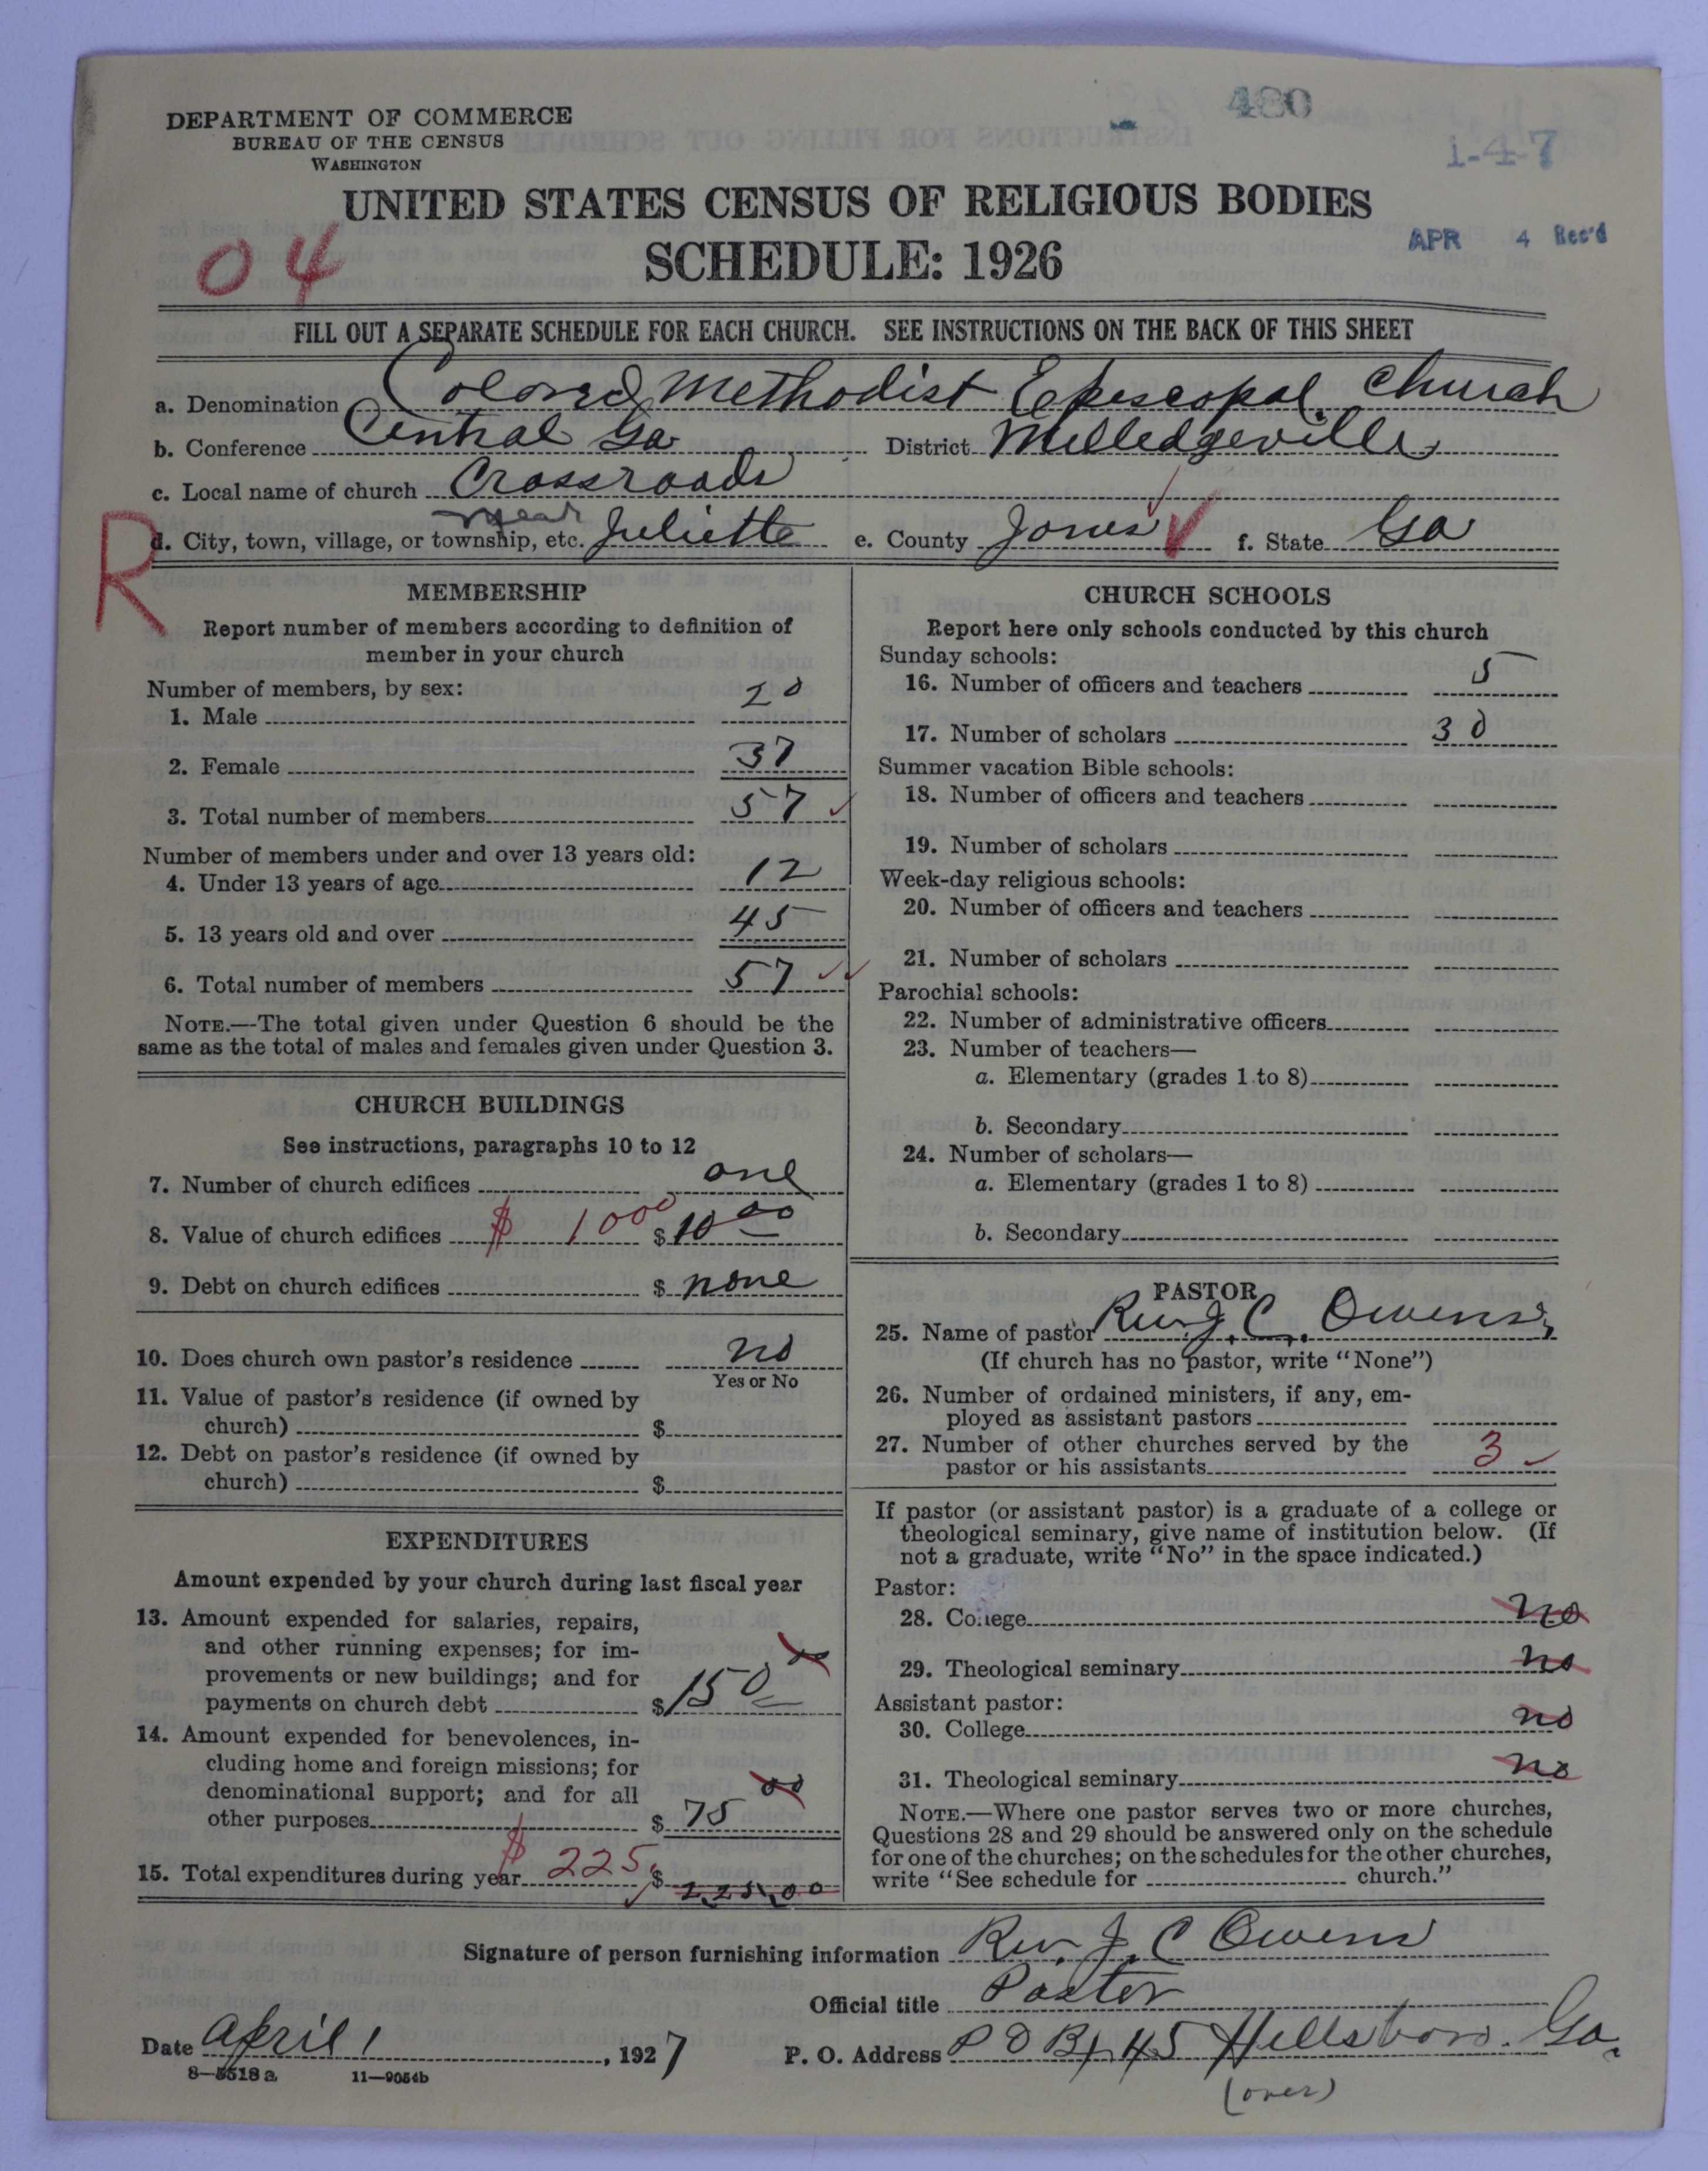 480
1-4-7
DEPARTMENT OF COMMERCE
BUREAU OF THE CENSUS
WASHINGTON
UNITED STATES CENSUS OF RELIGIOUS BODIES
SCHEDULE: 1926
04
APR 4 Rec'd
FILL OUT A SEPARATE SCHEDULE FOR EACH CHURCH. SEE INSTRUCTIONS ON THE BACK OF THIS SHEET
a. Denomination Colored Methodist Episcopal Church
b. Conference Central Ga District Milledgeville
c. Local name of church Crossroads
near
R d. City, town, village, or township, etc. Juliette e. County Jones f. State Ga
MEMBERSHIP
Report number of members according to definition of
member in your church
Number of members, by sex:
1. Male 20
2. Female 37
3. Total number of members 57
Number of members under and over 13 years old:
4. Under 13 years of age 12
5. 13 years old and over 45
6. Total number of members 57
NOTE.—The total given under Question 6 should be the
same as the total of males and females given under Question 3.
CHURCH BUILDINGS
See instructions, paragraphs 10 to 12
7. Number of church edifices one
8. Value of church edifices $ 1000 $ 10 00
9. Debt on church edifices $ none
10. Does church own pastor's residence no
Yes or No
11. Value of pastor's residence (if owned by
church) $
12. Debt on pastor's residence (if owned by
church) $
EXPENDITURES
Amount expended by your church during last fiscal year
13. Amount expended for salaries, repairs,
and other running expenses; for im-
provements or new buildings; and for
payments on church debt $ 150 00
14. Amount expended for benevolences, in-
cluding home and foreign missions; for
denominational support; and for all
other purposes $ 75 00
15. Total expenditures during year $ 225. $ 225.00
CHURCH SCHOOLS
Report here only schools conducted by this church
Sunday schools:
16. Number of officers and teachers 5
17. Number of scholars 30
Summer vacation Bible schools:
18. Number of officers and teachers
19. Number of scholars
Week-day religious schools:
20. Number of officers and teachers
21. Number of scholars
Parochial schools:
22. Number of administrative officers
23. Number of teachers—
a. Elementary (grades 1 to 8)
b. Secondary
24. Number of scholars—
a. Elementary (grades 1 to 8)
b. Secondary
PASTOR
25. Name of pastor Rev. J. C. Owens,
(If church has no pastor, write "None")
26. Number of ordained ministers, if any, em-
ployed as assistant pastors
27. Number of other churches served by the
pastor or his assistants 3
If pastor (or assistant pastor) is a graduate of a college or
theological seminary, give name of institution below. (If
not a graduate, write "No" in the space indicated.)
Pastor:
28. College no
29. Theological seminary no
Assistant pastor:
30. College no
31. Theological seminary no
NOTE.—Where one pastor serves two or more churches,
Questions 28 and 29 should be answered only on the schedule
for one of the churches; on the schedules for the other churches,
write "See schedule for church."
Signature of person furnishing information Rev. J. C Owens
Official title Pastor
Date April 1, 1927 P. O. Address P O Bx 45 Hillsboro. Ga.
8—5518 a 11—9054b
(over)